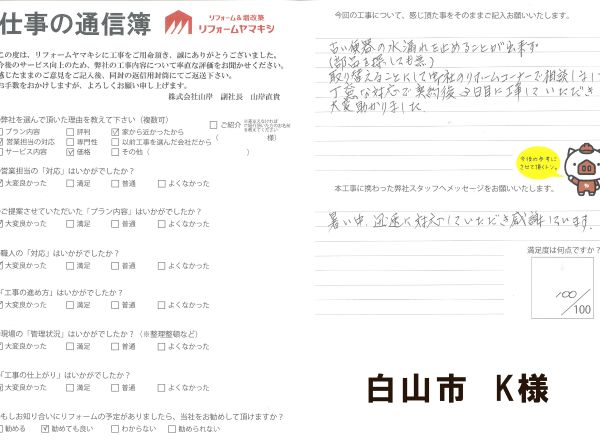 仕事の通信簿
リフォーム&増改築
リフォームヤマキシ
この度は、リフォームヤマキシに工事をご用命頂き、誠にありがとうございました。
今後のサービス向上のため、弊社の工事内容について率直な評価をお聞かせください。
感じたままのご意見をご記入後、同封の返信用封筒にてご返送下さい。
お手数をおかけしますが、よろしくお願い申し上げます。
株式会社山岸 副社長 山岸直貴
弊社を選んで頂いた理由を教えて下さい(複数可)
プラン内容 評判 家から近かったから
営業担当の対応 専門性 以前工事を選んだ会社だから
サービス内容 価格 その他( )
ご紹介
( 様)
営業担当の「対応」はいかがでしたか?
大変良かった 満足 普通 よくなかった
ご提案させていただいた「プラン内容」はいかがでしたか?
大変良かった 満足 普通 よくなかった
職人の「対応」はいかがでしたか?
大変良かった 満足 普通 よくなかった
「工事の進め方」はいかがでしたか?
大変良かった 満足 普通 よくなかった
現場の「管理状況」はいかがでしたか?(※整理整頓など)
大変良かった 満足 普通 よくなかった
「工事の仕上がり」はいかがでしたか?
大変良かった 満足 普通 よくなかった
もしお知り合いにリフォームの予定がありましたら、当社をお勧めして頂けますか?
勧める 勧めても良い わからない 勧められない
今回の工事について、感じた事柄をそのままご記入お願いいたします。
古い便器の水漏れを止めることが出来ず
(部品を探しても無)
取り替えることにして御社のリフォームコーナーで相談しまし
丁寧な対応で契約後3日目に工事していただき
大変助かりました。
今後の参考に
させて頂くトン。
本工事に携わった弊社スタッフへメッセージをお願いいたします。
暑い中、迅速に対応していただき感謝しています。
満足度は何点ですか?
100
/100
白山市 K様